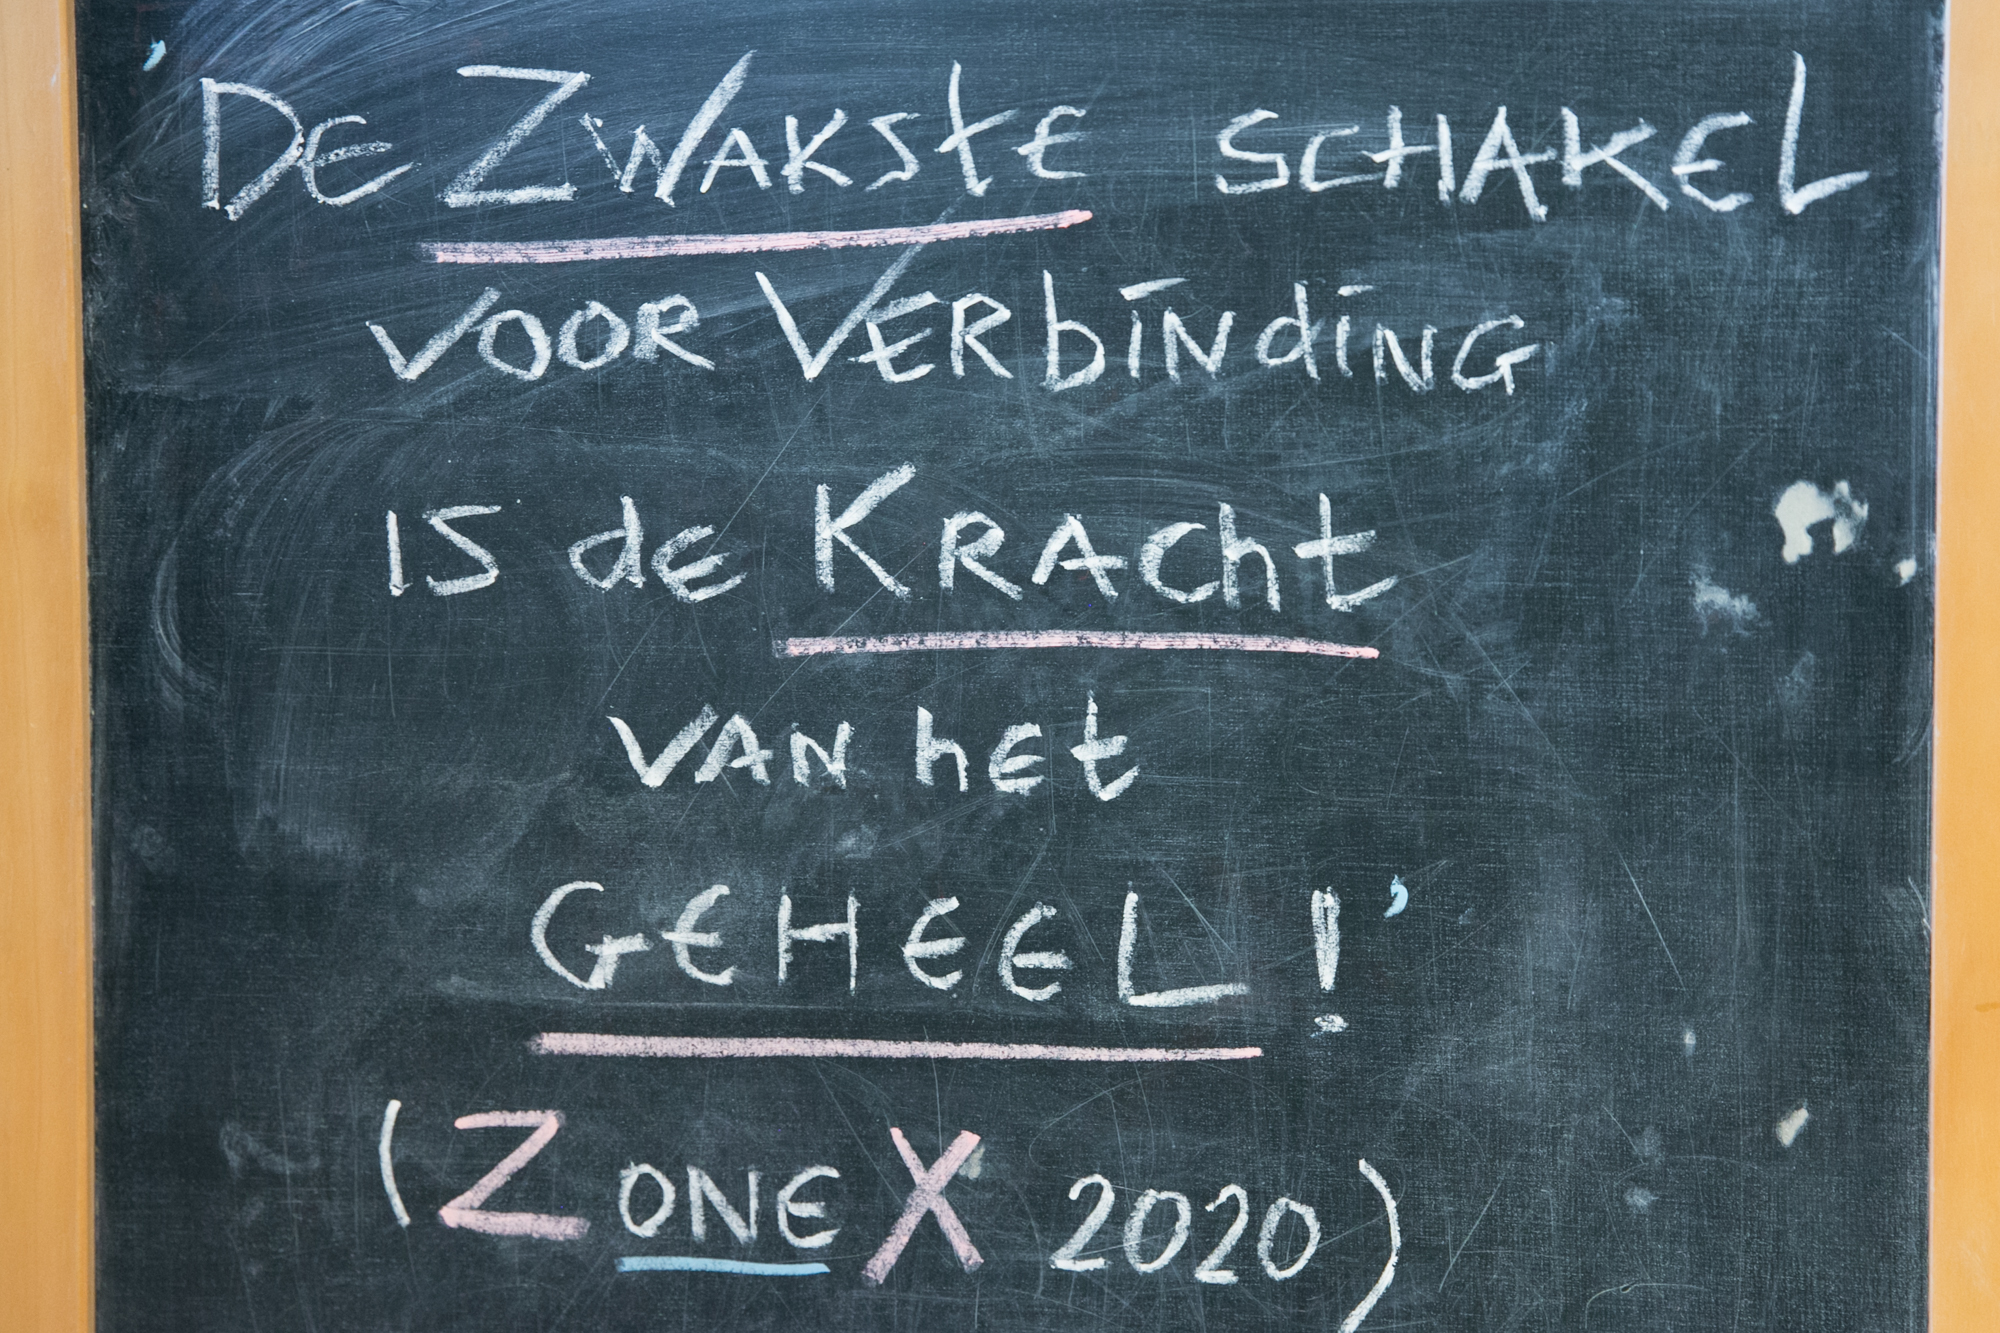 'DE ZWAKSTE SCHAKEL
VOOR VERbINdiNG
IS dE KRACht
VAN hEt
GEHEEL!'
(ZONE X 2020)